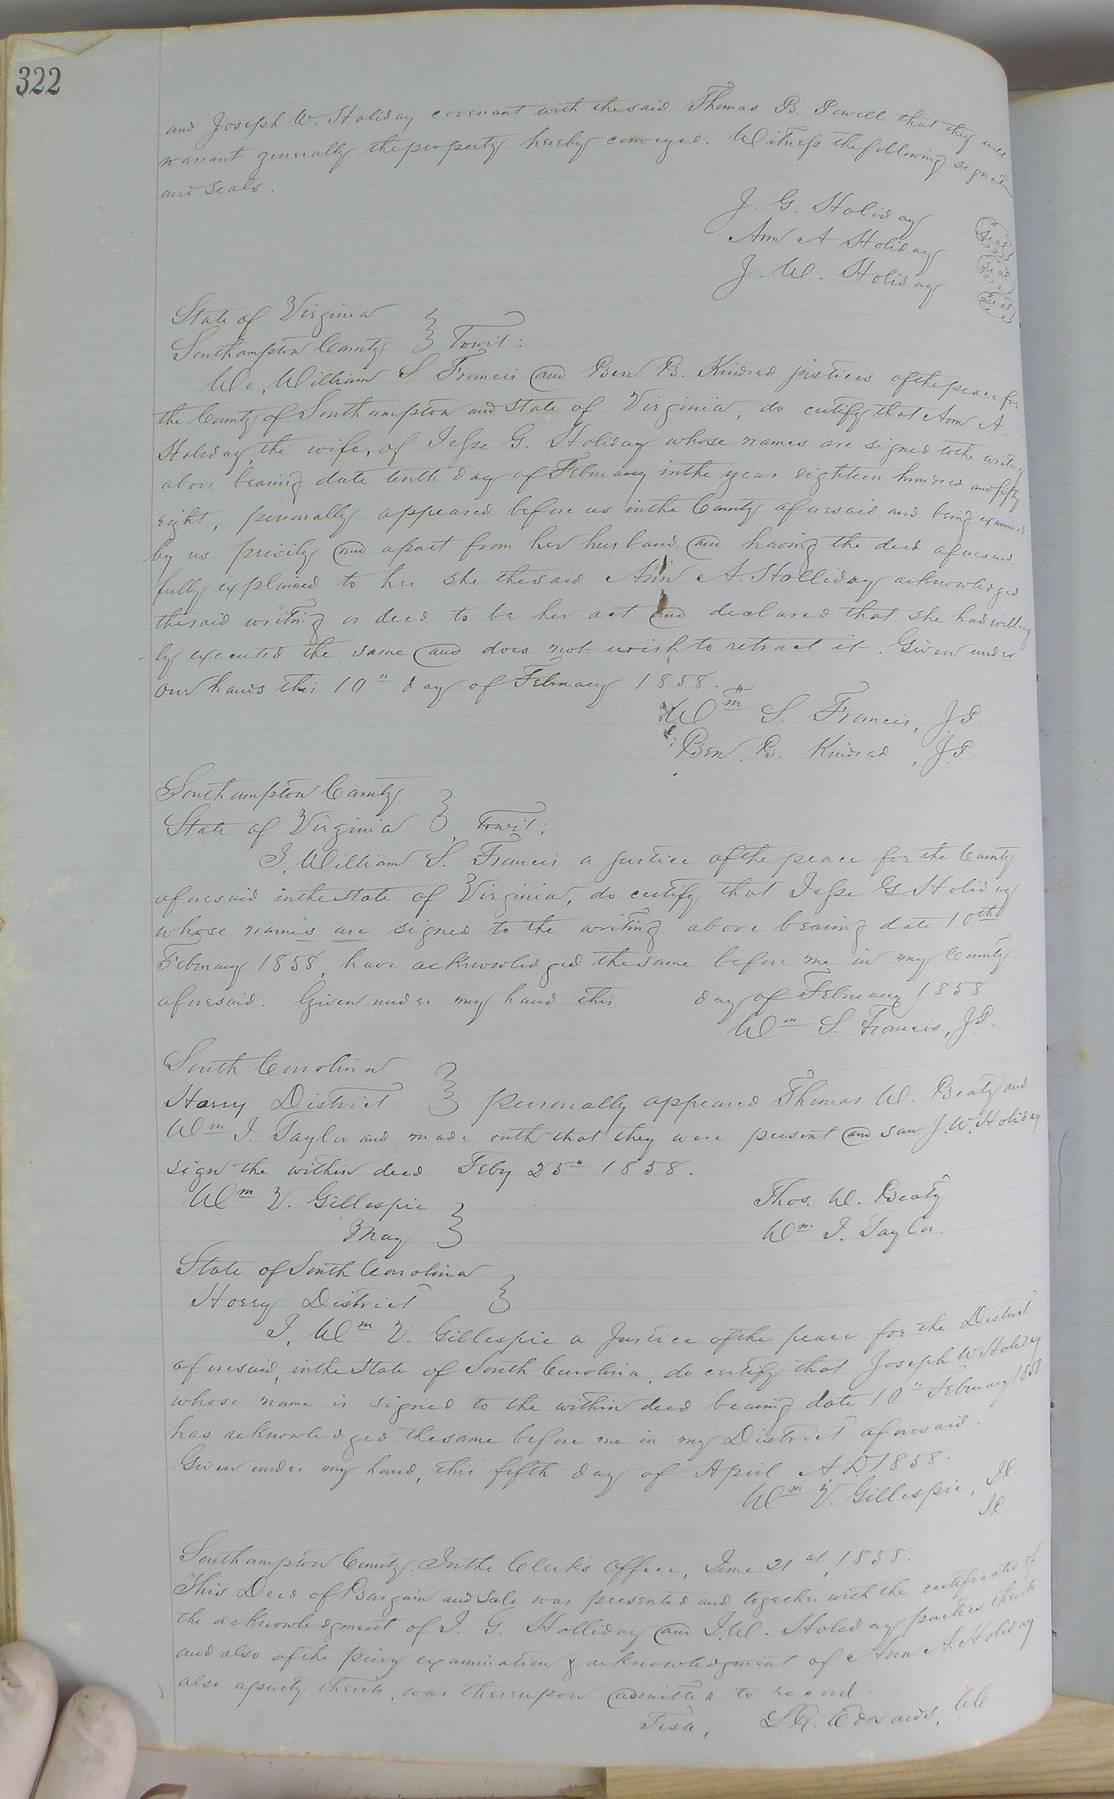 322
and Joseph W. Holiday covenant with the said Thomas B. Powell that they will
warrant generally the property hereby conveyed. Witness the following signatures
and seals.
J. G. Holiday Seal
Ann A Holiday Seal
J. W. Holiday Seal
State of Virginia
Southampton County } Towit:
We, William S. Francis and Ben B. Kindred justices of the peace for
the County of Southampton and State of Virginia, do certify that Ann A.
Holiday the wife, of Jesse G. Holiday whose names are signed to the writing
above bearing date tenth day of February in the year eighteen hundred and fifty
eight, personally appeared before us in the County aforesaid and being examined
by us privily and apart from her husband and having the deed aforesaid
fully explained to her she the said Ann A. Holliday acknowledged
the said writing or deed to be her act and declared that she had willing
ly executed the same and does not wish to retract it. Given under
our hands this 10" day of February 1858.
Wm S. Francis, J.P.
Ben. B. Kindred, J.P.
Southampton County
State of Virginia } Towit;
I, William S. Francis a justice of the peace for the County
aforesaid in the State of Virginia, do certify that Jesse G Holiday
whose names are signed to the writing above bearing date 10th
February 1858, have acknowledged the same before me in my County
aforesaid. Given under my hand this day of February 1858
Wm S. Francis, J.P.
South Carolina
Horry District } personally appeared Thomas W. Beaty and
Wm J. Taylor and made outh that they were present and saw J. W. Holiday
sign the within deed Feby 25" 1858.
Wm V. Gillespie Thos. W. Beaty
Mag } Wm J. Taylor.
State of South Carolina
Horry District }
I, Wm V. Gillespie a Justice of the peace for the District
aforesaid, in the State of South Carolina, do certify that Joseph W Holiday
whose name is signed to the within deed bearing date 10" February 1858
has acknowledged the same before me in my District aforesaid.
Given under my hand, this fifth day of April A.D 1858.
Wm V. Gillespie,
Southampton County. In the Clerk's Office, June 21st, 1858.
This Deed of Bargain and Sale was presented and together with the certificates of
the acknowledgment of J. G. Holliday and J. W. Holiday parties thereto
and also of the privy examination & acknowledgment of Ann A. Holiday
also a party thereto, was thereupon admitted to record.
Teste, L. R. Edwards, C C